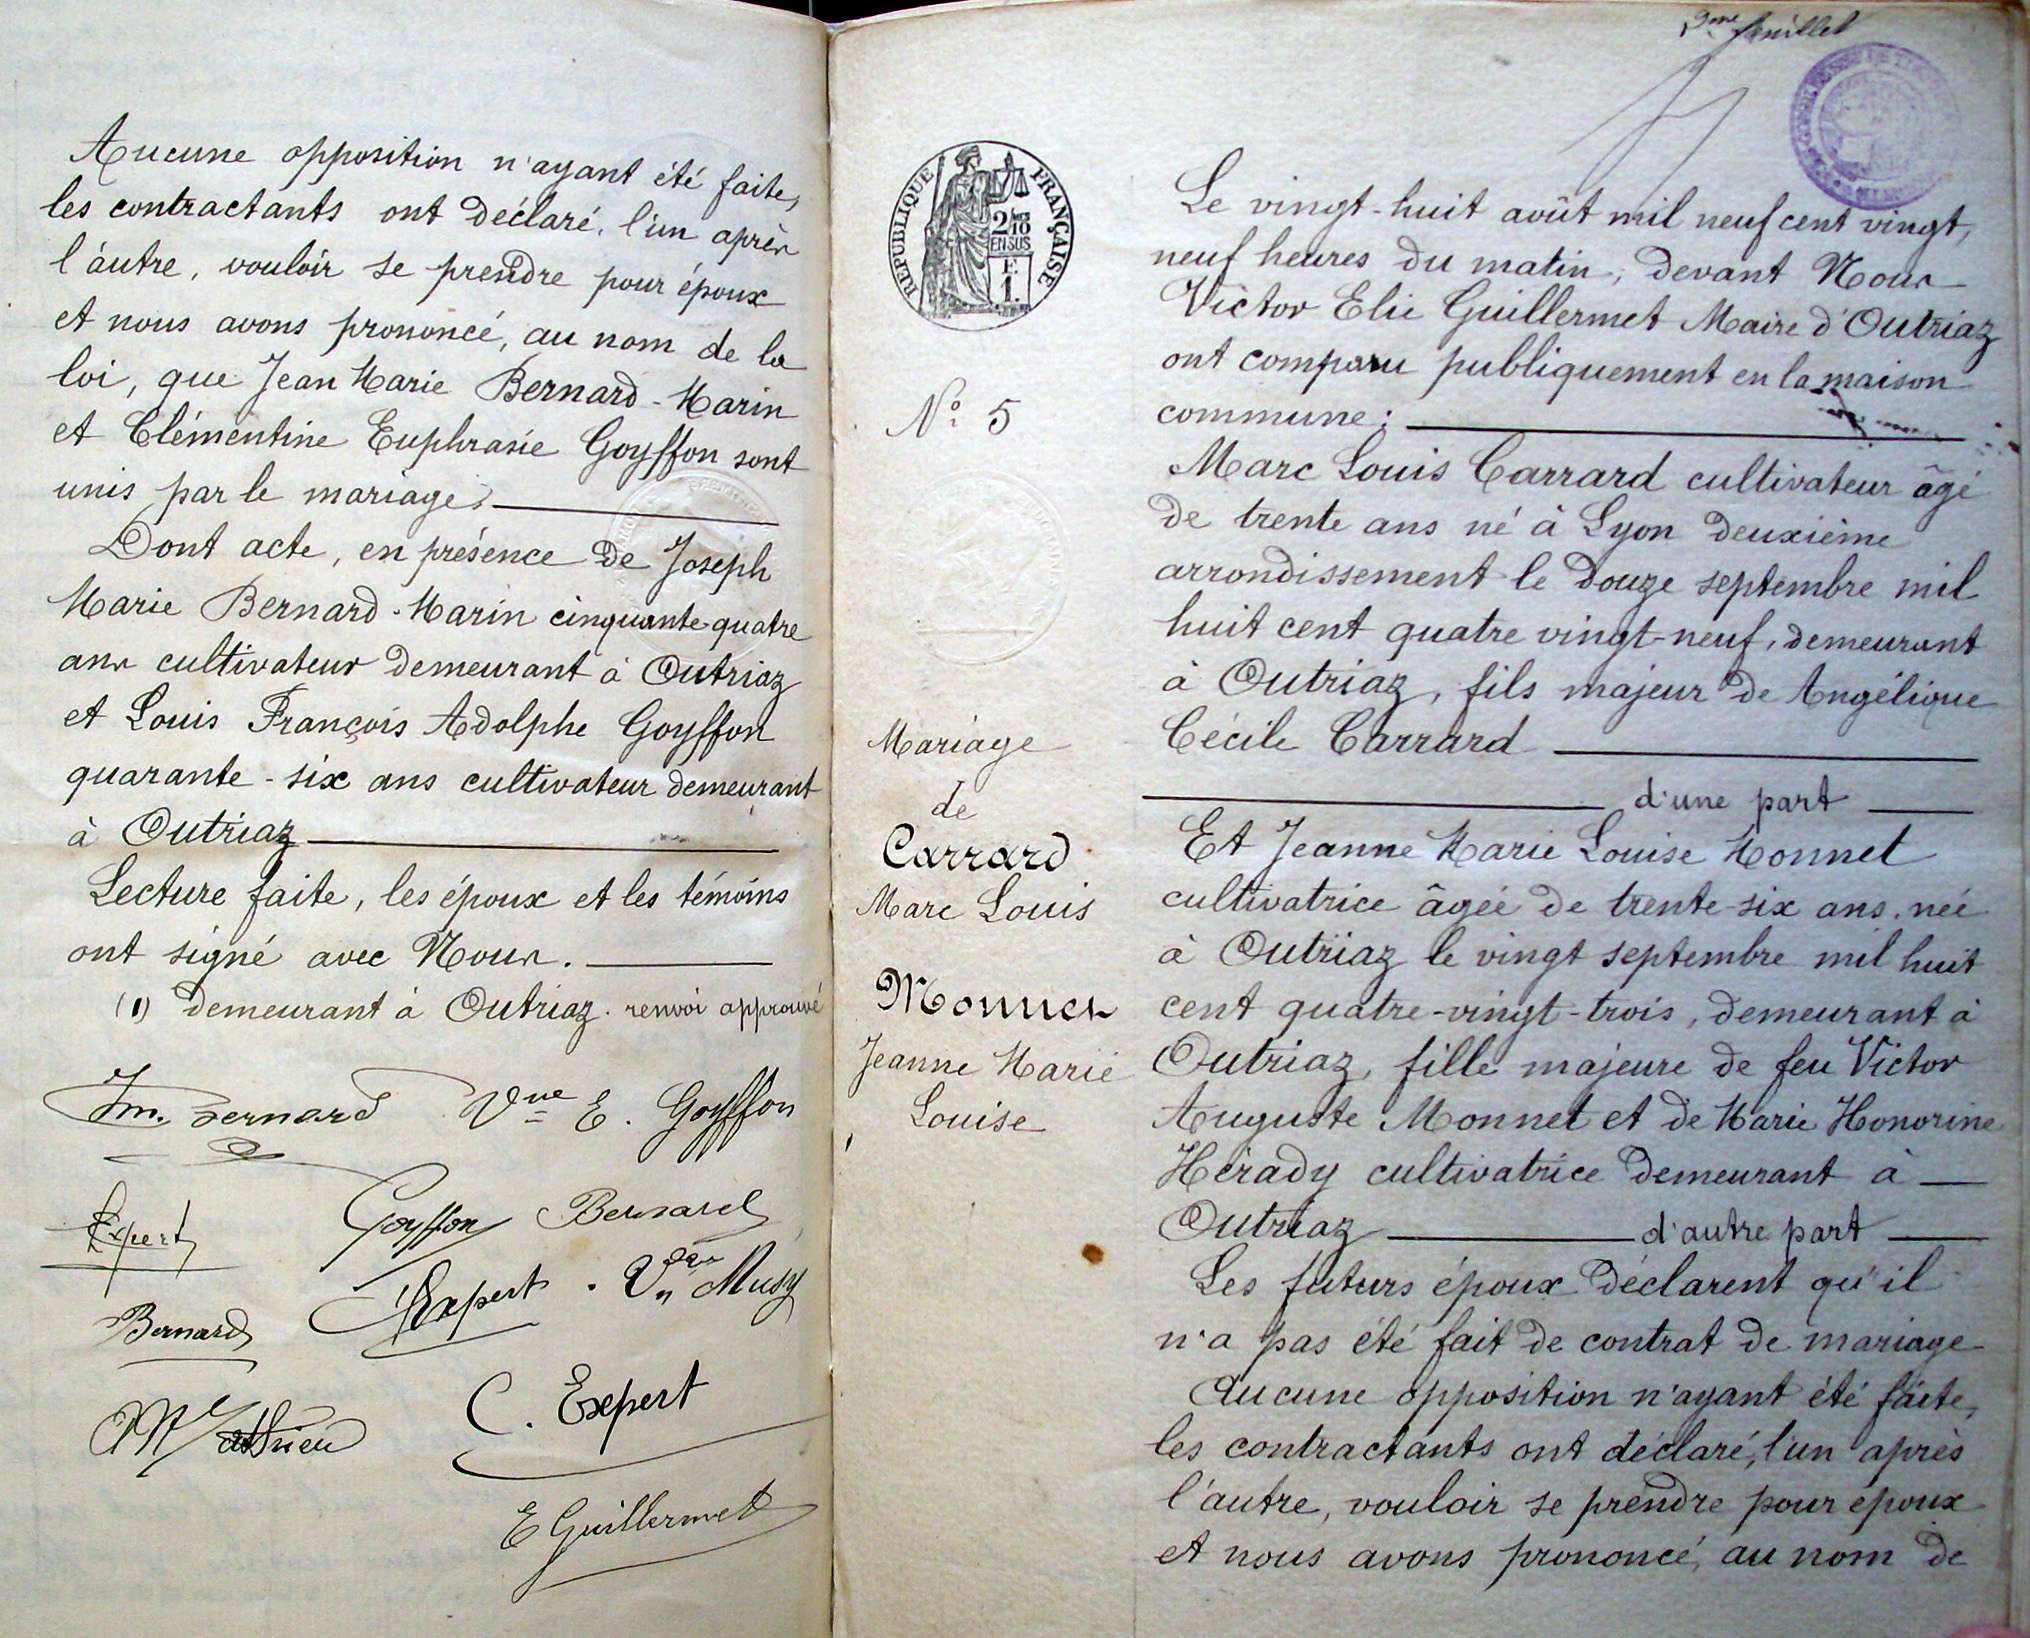 Aucune opposition n'ayant été faite,
les contractants ont déclaré, l'un après
l'autre, vouloir se prendre pour époux
et nous avons prononcé, au nom de la
loi, que Jean Marie Bernard-Marin
et Clémentine Euphrasie Goyffon sont
unis par le mariage.
Dont acte, en présence de Joseph
Marie Bernard-Marin cinquante-quatre
ans cultivateur demeurant à Outriaz
et Louis François Adolphe Goyffon
quarante-six ans cultivateur demeurant
à Outriaz
Lecture faite, les époux et les témoins
ont signé avec Nous.
(1) demeurant à Outriaz. renvoi approuvé
Jm. Bernard Vve E. Goyffon
Expert Goyffon Bernard
Expert Musy
Bernard
Mathieu C. Expert
E Guillermet
feuillet
RÉPUBLIQUE FRANÇAISE
2/10
EN SUS
F.
1.
N° 5
Mariage
de
Carrard
Marc Louis
Monnet
Jeanne Marie
Louise
Le vingt-huit août mil neuf cent vingt,
neuf heures du matin, devant Nous
Victor Elie Guillermet Maire d'Outriaz
ont comparu publiquement en la maison
commune :
Marc Louis Carrard cultivateur âgé
de trente ans né à Lyon deuxième
arrondissement le douze septembre mil
huit cent quatre vingt-neuf, demeurant
à Outriaz, fils majeur de Angélique
Cécile Carrard
d'une part
Et Jeanne Marie Louise Monnet
cultivatrice âgée de trente-six ans, née
à Outriaz le vingt septembre mil huit
cent quatre-vingt-trois, demeurant à
Outriaz, fille majeure de feu Victor
Auguste Monnet et de Marie Honorine
Hérady cultivatrice demeurant à
Outriaz d'autre part
Les futurs époux déclarent qu'il
n'a pas été fait de contrat de mariage
Aucune opposition n'ayant été faite,
les contractants ont déclaré, l'un après
l'autre, vouloir se prendre pour époux
et nous avons prononcé, au nom de